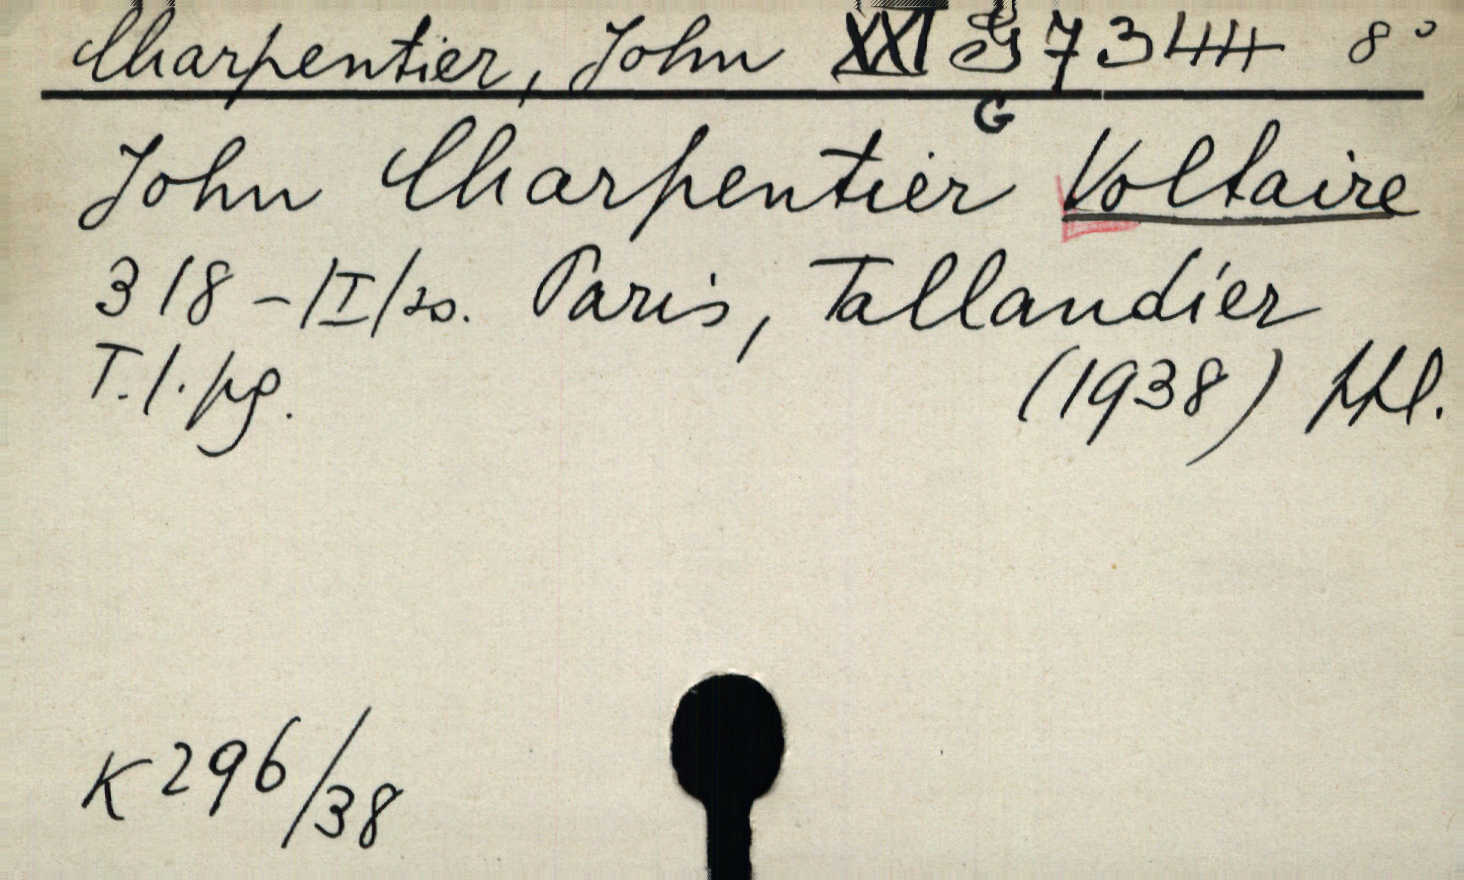 Charpentier, John XXI G 7344 8°
G
John Charpentier Voltaire
318 - /I/ Paris, Tallandier
T. l. pg. (1938) ppl.
K 296/38